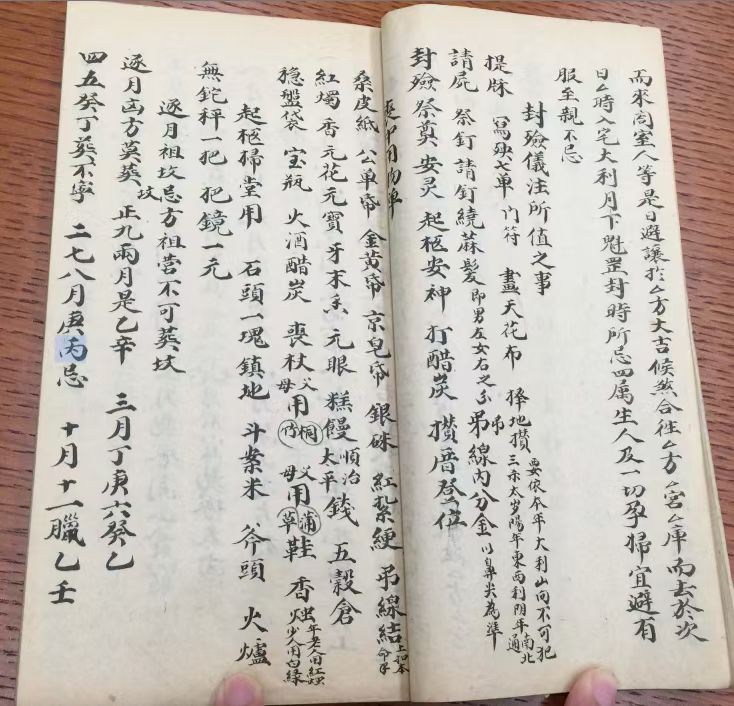 而來閤室人等是日避讓於厶方大吉候煞合徃厶方宮厶庫而去於次
日厶時入宅大利月下魁罡封時所忌四属生人及一切孕婦宜避有
服至親不忌
封殮儀注所值之事
提牀 寫殃七单 门符 畫天花布 擇地攢 要依本年大利山向不可犯
三赤太岁陽年東西利阴年南北通
請屍 祭釘請釘繞蔴髮即男左女右之分 吊線内分金 以鼻尖為準
封殮祭奠安灵 起柩安神 打醋炭 攢厝登位
桑皮紙 公单帋 金黄帋 京皂帋 銀硃 紅紮綆 吊線結
紅燭 香元花元寶牙末 元眼 糕饅 順治太平錢 五穀倉
穏盤袋 宝瓶 火酒醋炭 喪杖父用桐母用竹 父用蒲母用草鞋 香烛年老人用紅烛少人用白绿
起柩掃堂用 石頭一塊鎮地 斗案米 斧頭 火爐
無鉈秤一把 把鏡一元
逐月祖坟忌方祖营不可葬坟
逐月凶方莫葬坟 正九兩月是乙辛 三月丁庚六癸乙
四五癸丁葬不寧 二七八月庚丙忌 十月十一臘乙壬